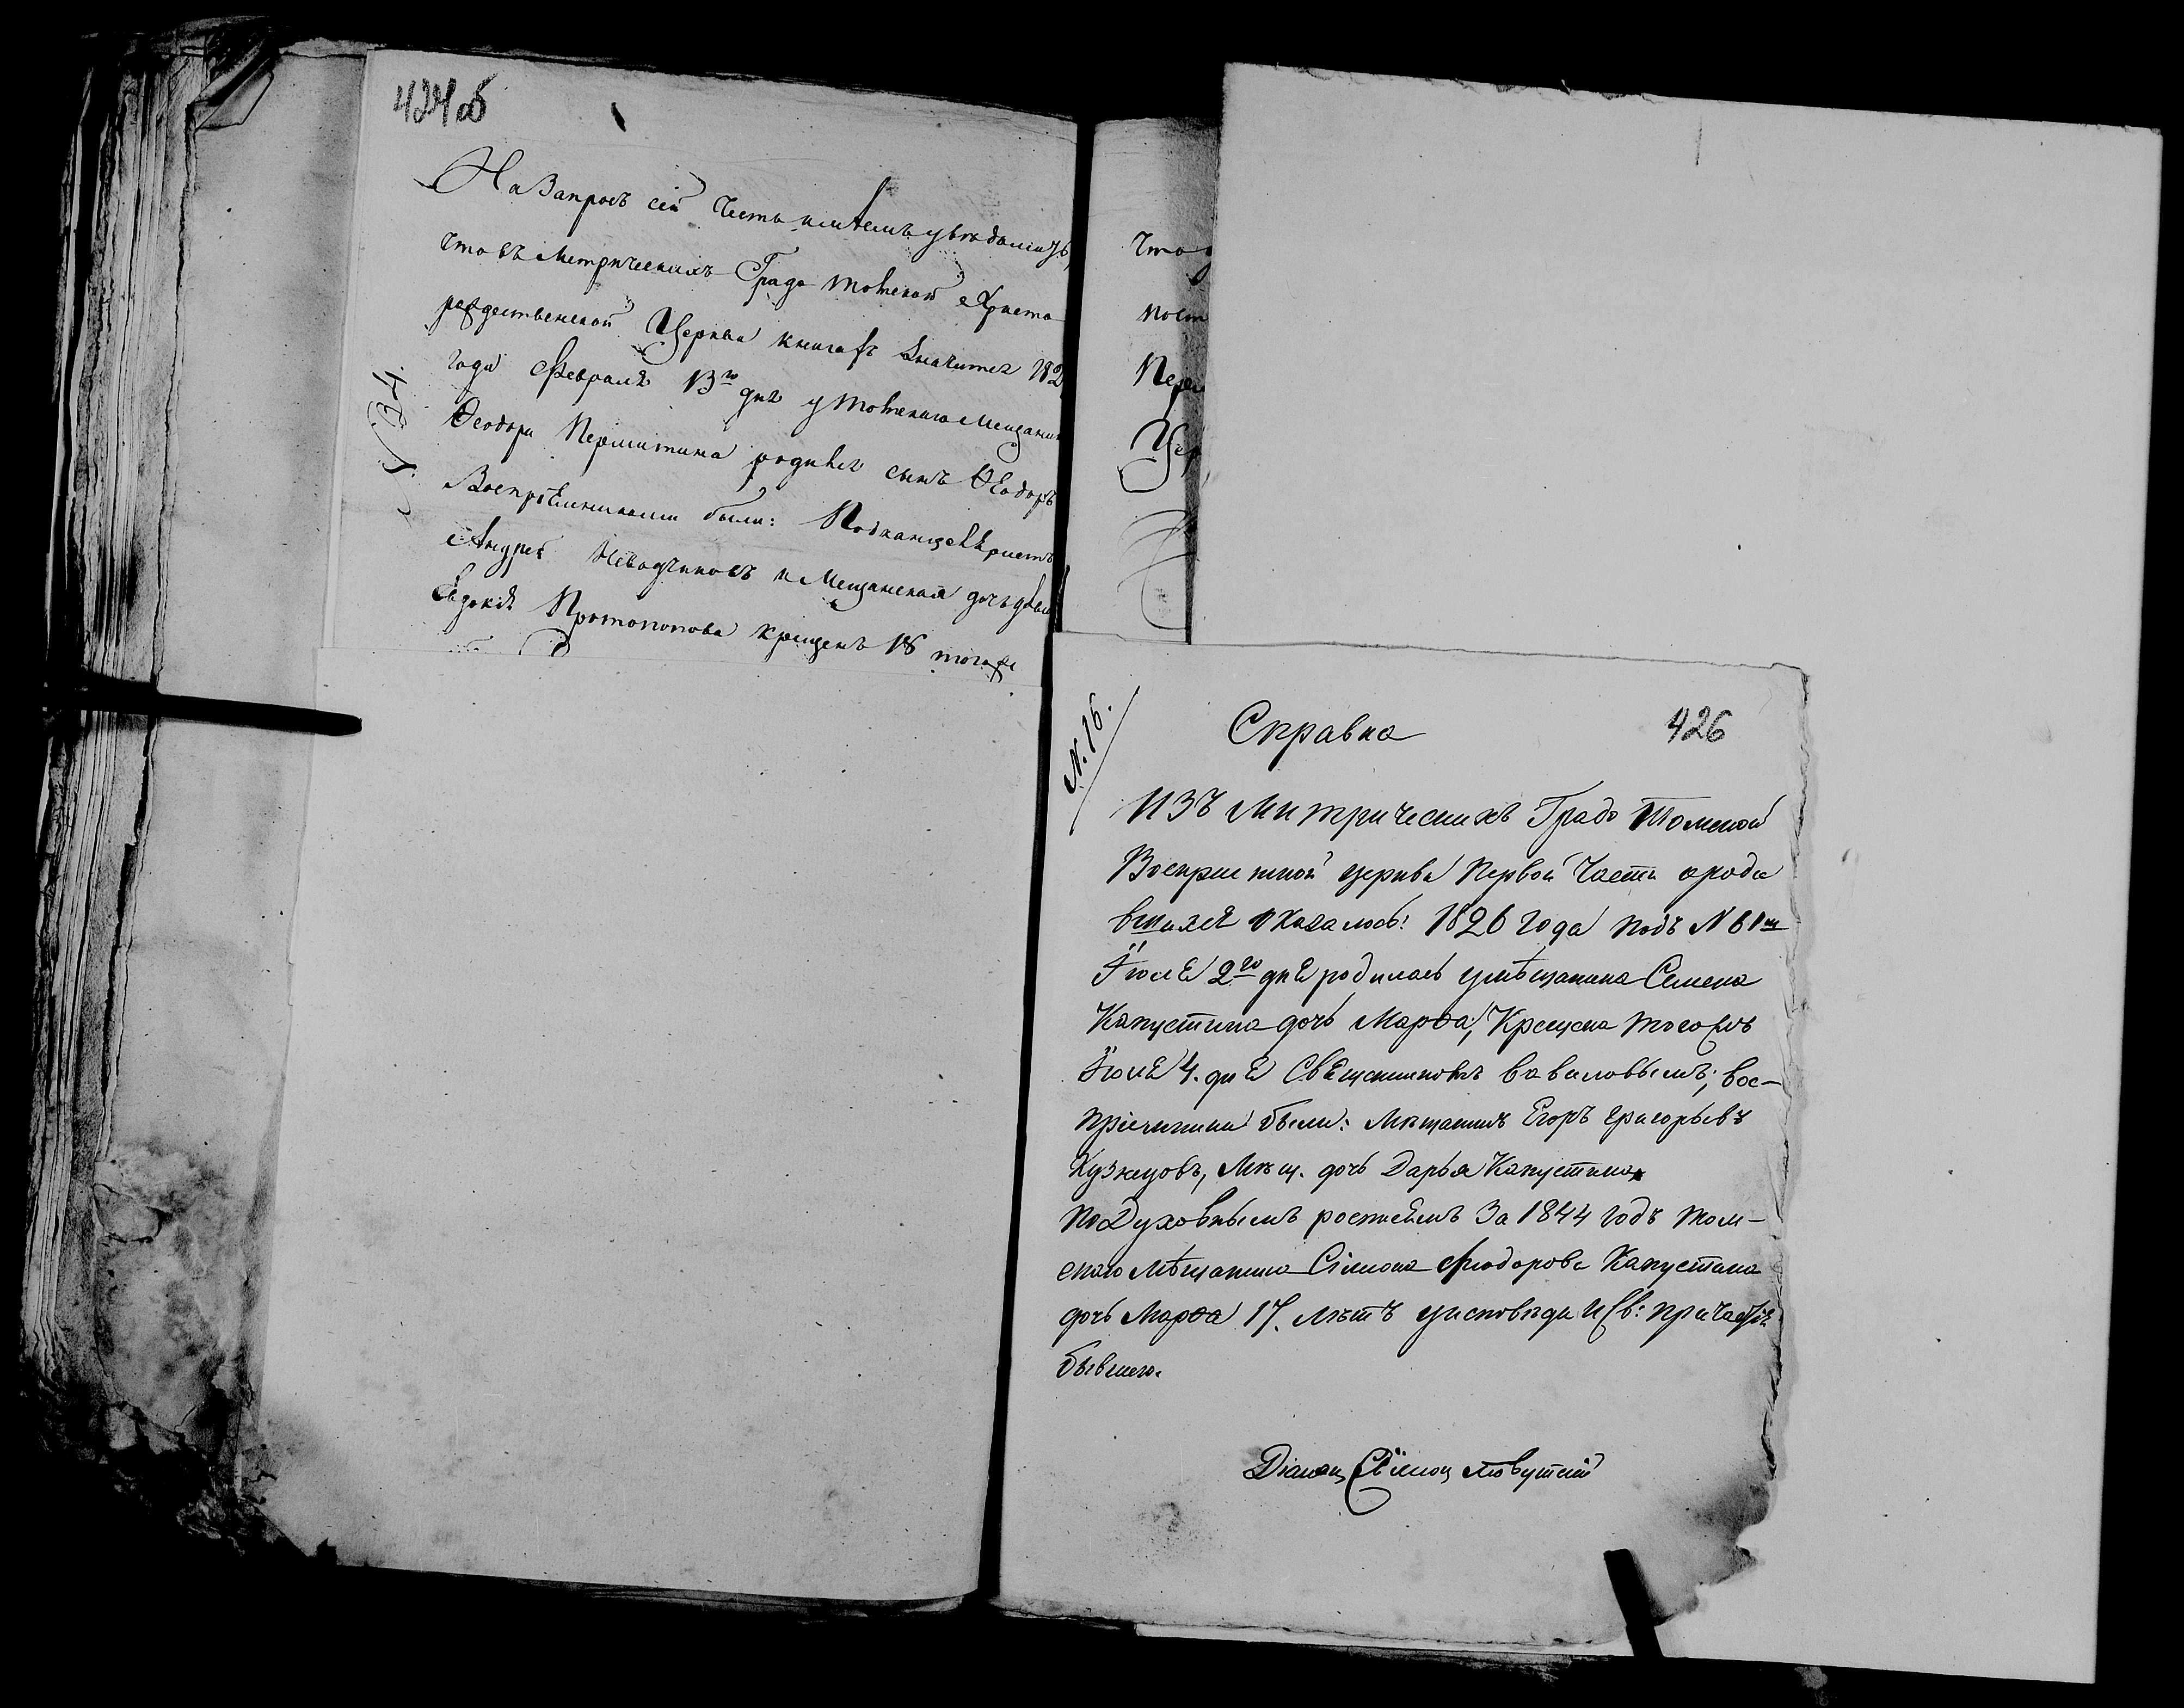 424об
На Запросъ сей Честь имѣемъ увѣдомить,
что въ Метрическихъ Градо Томской Христо
рождественской Церкви книгахъ Значится 182
года Февраля 13го дня у Томскаго Мещанин
Ѳеодора Першитина родился сынъ Ѳеодоръ
Воспрiемниками были: Подканцеляристъ
Андрей и Мещанская дочь
Евдокiя Протопопова крещенъ 18 тогоже
что
пост
Пер
Цер
N. 16.
Справка
426
ИЗЪ Митрическихъ Градо Томской
церкви Первой Части ороди
вшихся оказалось: 1826 года подъ N 61м
Iюля 2го дня родилась умѣщанина Семена
Капустина дочь Марѳа, Крещена тогожъ
Iюля 4. дня Священникомъ Вавиловымъ; вос-
прiемники были: Мѣщанинъ Егоръ Григорьевъ
Кузнецовъ, Мѣщ. дочь Дарья Капустина
по Духовнымъ росписямъ За 1844 годъ Том-
скаго мѣщанина Сiмиона Ѳиодорова Капустина
дочь Марѳа 17. лѣтъ уисповѣди и Св: причастiя
бывшею.
Дiаконъ Сiмион